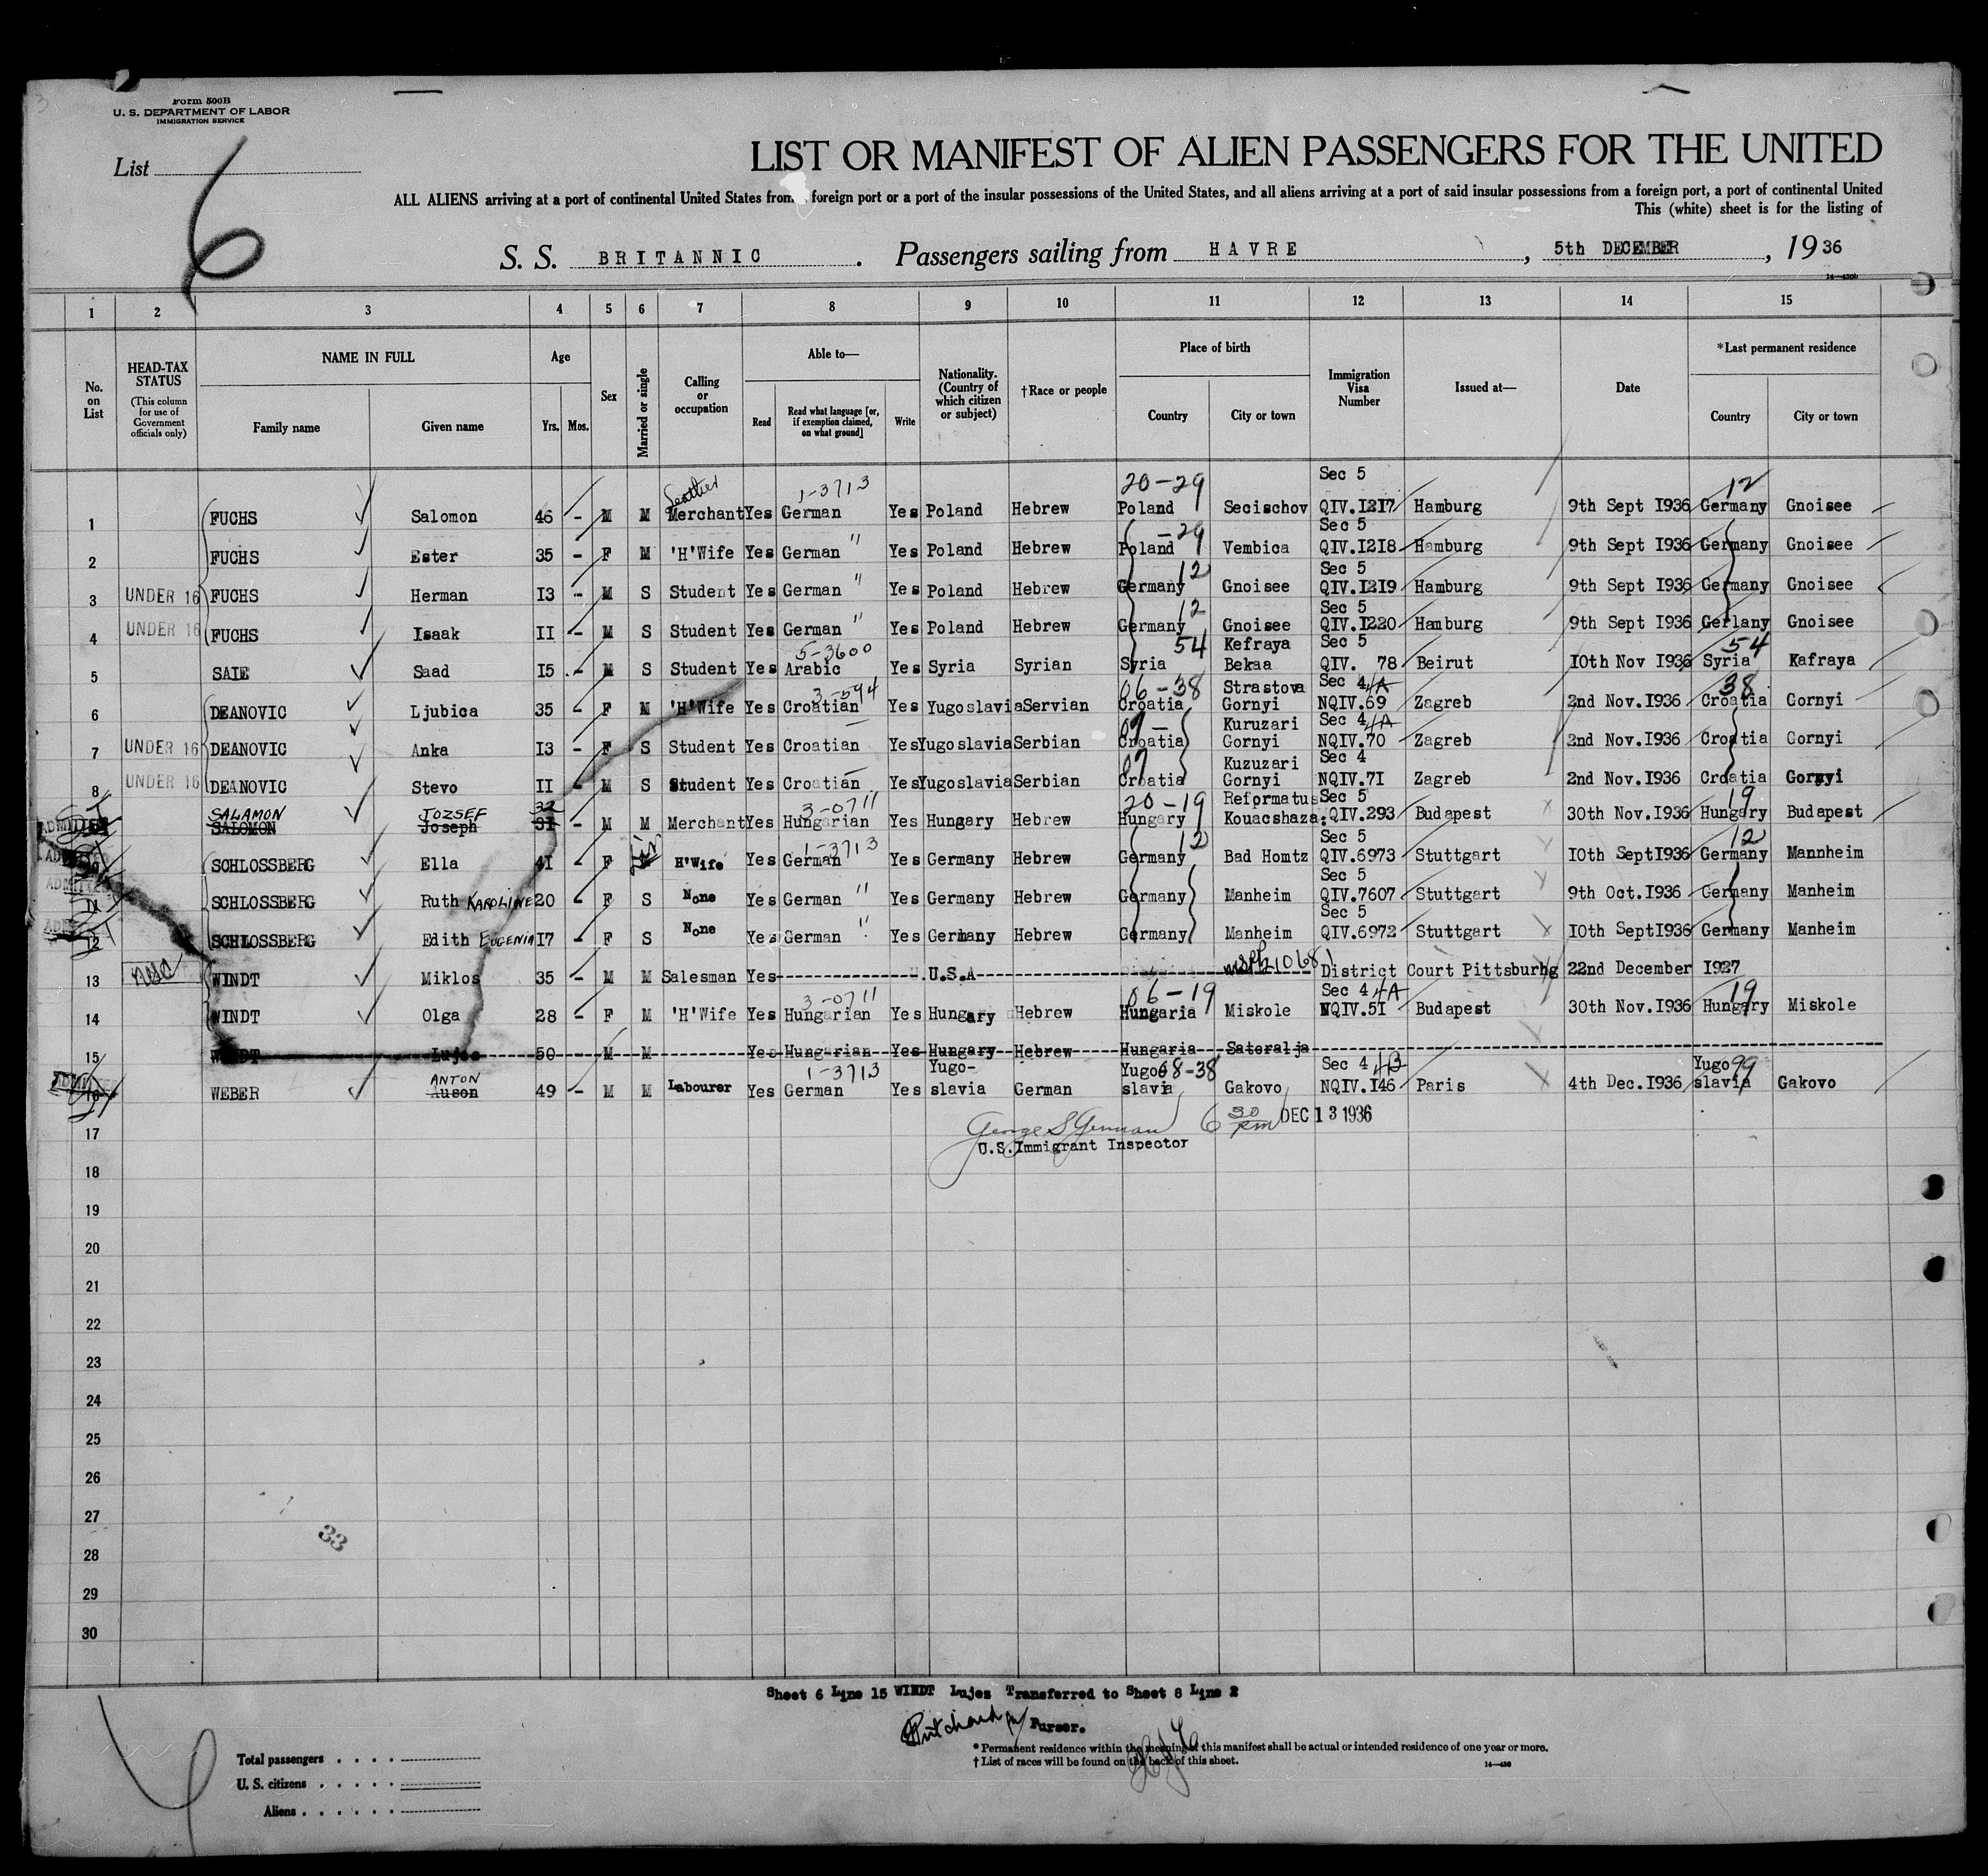 Form 500B
U. S. DEPARTMENT OF LABOR
IMMIGRATION SERVICE
List
6
LIST OR MANIFEST OF ALIEN PASSENGERS FOR THE UNITED
ALL ALIENS arriving at a port of continental United States from foreign port or a port of the insular possessions of the United States, and all aliens arriving at a port of said insular possessions from a foreign port, a port of continental United
This (white) sheet is for the listing of
S. S. BRITANNIC . Passengers sailing from HAVRE , 5th DECEMBER , 1936
1 2 3 4 5 6 7 8 9 10 11 12 13 14 15
No. on List
HEAD-TAX STATUS (This column for use of Government officials only)
NAME IN FULL
Family name
Given name
Age
Yrs. Mos.
Sex
Married or single
Calling or occupation
Able to—
Read
Read what language [or, if exemption claimed, on what ground]
Write
Nationality. (Country of which citizen or subject)
†Race or people
Place of birth
Country
City or town
Immigration Visa Number
Issued at—
Date
*Last permanent residence
Country
City or town
Leather 1-3713 20-29 Sec 5 12
1 FUCHS Salomon 46 - M M Merchant Yes German Yes Poland Hebrew Poland Secischov QIV.I2I7 Hamburg 9th Sept I936 Germany Gnoisee
-29 Sec 5
2 FUCHS Ester 35 - F M 'H'Wife Yes German " Yes Poland Hebrew Poland Vembica QIV.I2I8 Hamburg 9th Sept I936 Germany Gnoisee
12 Sec 5
3 UNDER 16 FUCHS Herman I3 - M S Student Yes German " Yes Poland Hebrew Germany Gnoisee QIV.I2I9 Hamburg 9th Sept I936 Germany Gnoisee
12 Sec 5
4 UNDER 16 FUCHS Isaak II - M S Student Yes German " Yes Poland Hebrew Germany Gnoisee QIV.I220 Hamburg 9th Sept I936 Gerlany Gnoisee
5-3600 54 Kefraya Sec 5 54
5 SAIE Saad I5 - M S Student Yes Arabic Yes Syria Syrian Syria Bekaa QIV. 78 Beirut I0th Nov I936 Syria Kafraya
3-594 06-38 Strastova Sec 4 4A 38
6 DEANOVIC Ljubica 35 - F M 'H'Wife Yes Croatian Yes Yugoslavia Servian Croatia Gornyi NQIV.69 Zagreb 2nd Nov.I936 Croatia Gornyi
Kuruzari Sec 4 4A
7 UNDER 16 DEANOVIC Anka I3 - F S Student Yes Croatian Yes Yugoslavia Serbian Croatia Gornyi NQIV.70 Zagreb 2nd Nov.I936 Croatia Gornyi
Kuzuzari Sec 4
8 UNDER 16 DEANOVIC Stevo II - M S Student Yes Croatian Yes Yugoslavia Serbian Croatia Gornyi NQIV.7I Zagreb 2nd Nov.I936 Croatia Gornyi
SALAMON JOZSEF 32 3-0711 20-19 Reformatus Sec 5 19
ADMITTED SALOMON Joseph 31 - M M Merchant Yes Hungarian Yes Hungary Hebrew Hungary Kouacshaza: QIV.293 Budapest 30th Nov.I936 Hungary Budapest
1-3713 12 Sec 5 12
SCHLOSSBERG Ella 4I - F H'Wife Yes German Yes Germany Hebrew Germany Bad Homtz QIV.6973 Stuttgart I0th SeptI936 Germany Mannheim
Sec 5
ADMITTED 11 SCHLOSSBERG Ruth KAROLINE 20 - F S None Yes German " Yes Germany Hebrew Germany Manheim QIV.7607 Stuttgart 9th Oct.I936 Germany Manheim
Sec 5
12 SCHLOSSBERG Edith EUGENIA I7 - F S None Yes German " Yes Germany Hebrew Germany Manheim QIV.6972 Stuttgart I0th SeptI936 Germany Manheim
13 USC WINDT Miklos 35 - M M Salesman Yes U.S.A District Court Pittsburhg 22nd December I927
3-0711 06-19 Sec 4 4A 19
14 WINDT Olga 28 - F M 'H'Wife Yes Hungarian Yes Hungary Hebrew Hungaria Miskole NQIV.5I Budapest 30th Nov.I936 Hungary Miskole
15 WINDT Lujes 50 - M M Yes Hungarian Yes Hungary Hebrew Hungaria Satoralja
ANTON 1-3713 Yugo- Yugo 08-38 Sec 4 4B Yugo 99
ADMITTED 16 WEBER Auson 49 - M M Labourer Yes German Yes slavia German slavia Gakovo NQIV.I46 Paris 4th Dec.I936 slavia Gakovo
17 George S German 6 30 pm DEC 13 1936
U.S.Immigrant Inspector
18
19
20
21
22
23
24
25
26
27
33
28
29
30
Sheet 6 Line 15 WINDT Lujes Transferred to Sheet 8 Line 2
Pritchard Purser.
*Permanent residence within the meaning of this manifest shall be actual or intended residence of one year or more.
†List of races will be found on the back of this sheet.
Total passengers
U. S. citizens
Aliens